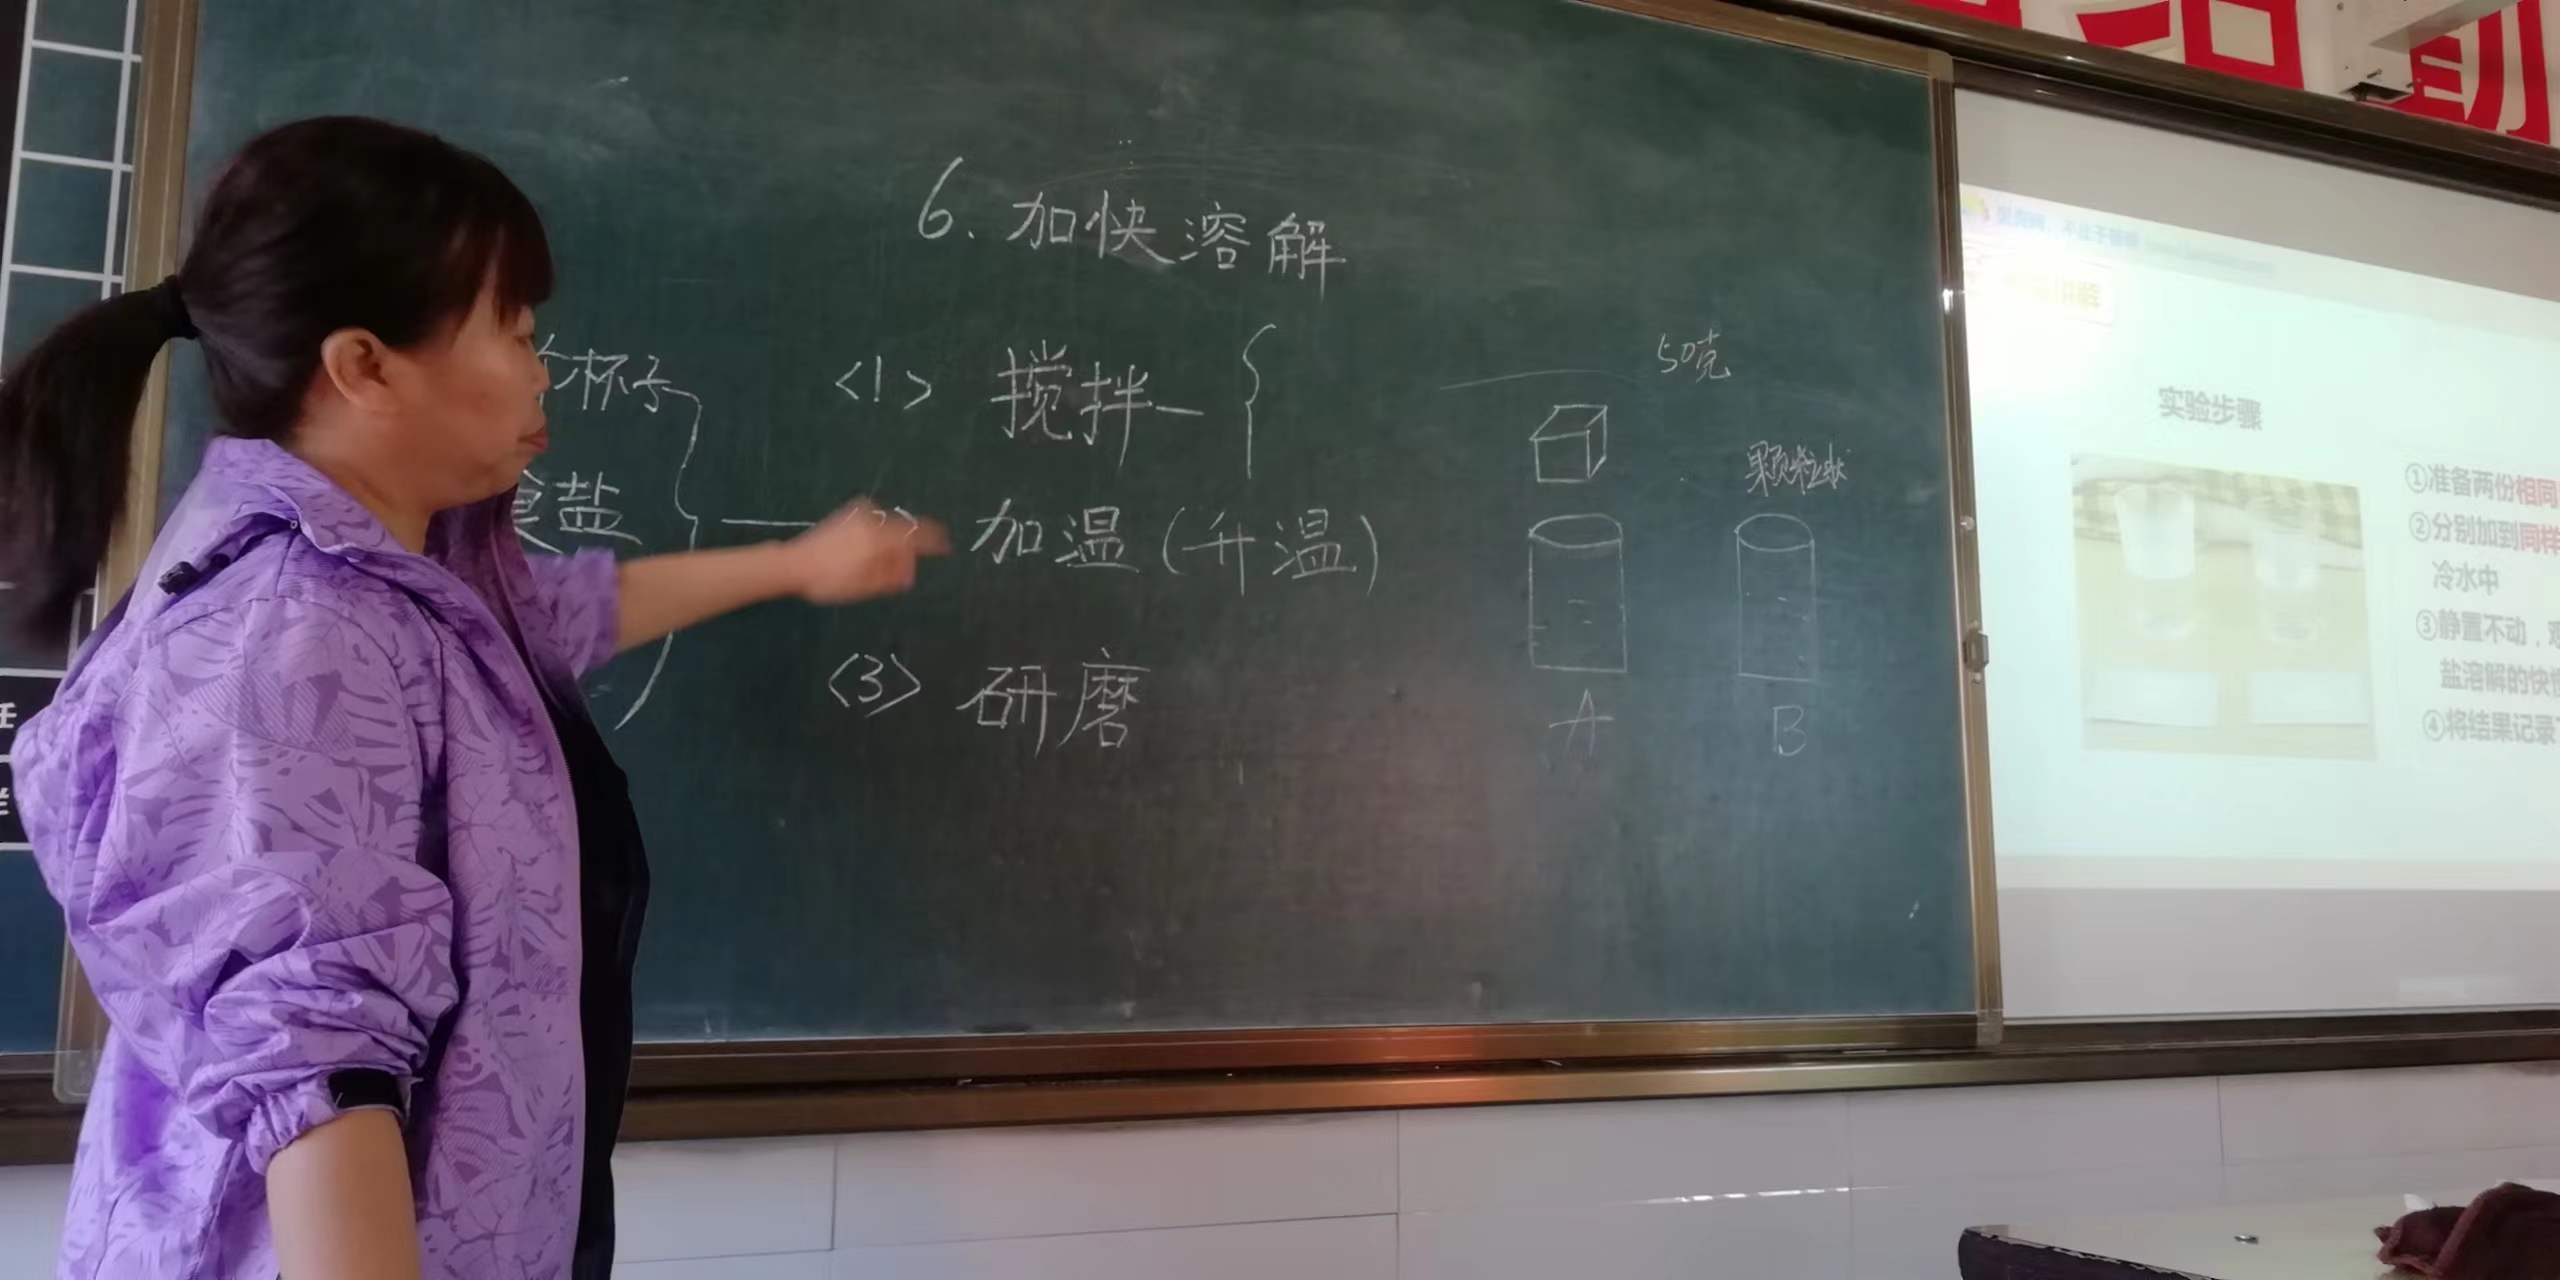 6. 加快溶解
个杯子
<1> 搅拌
食盐
加温(升温)
<3> 研磨
50克
颗粒状
A
B
实验步骤
①准备两份相同
②分别加到同样
冷水中
③静置不动，
盐溶解的快慢
④将结果记录